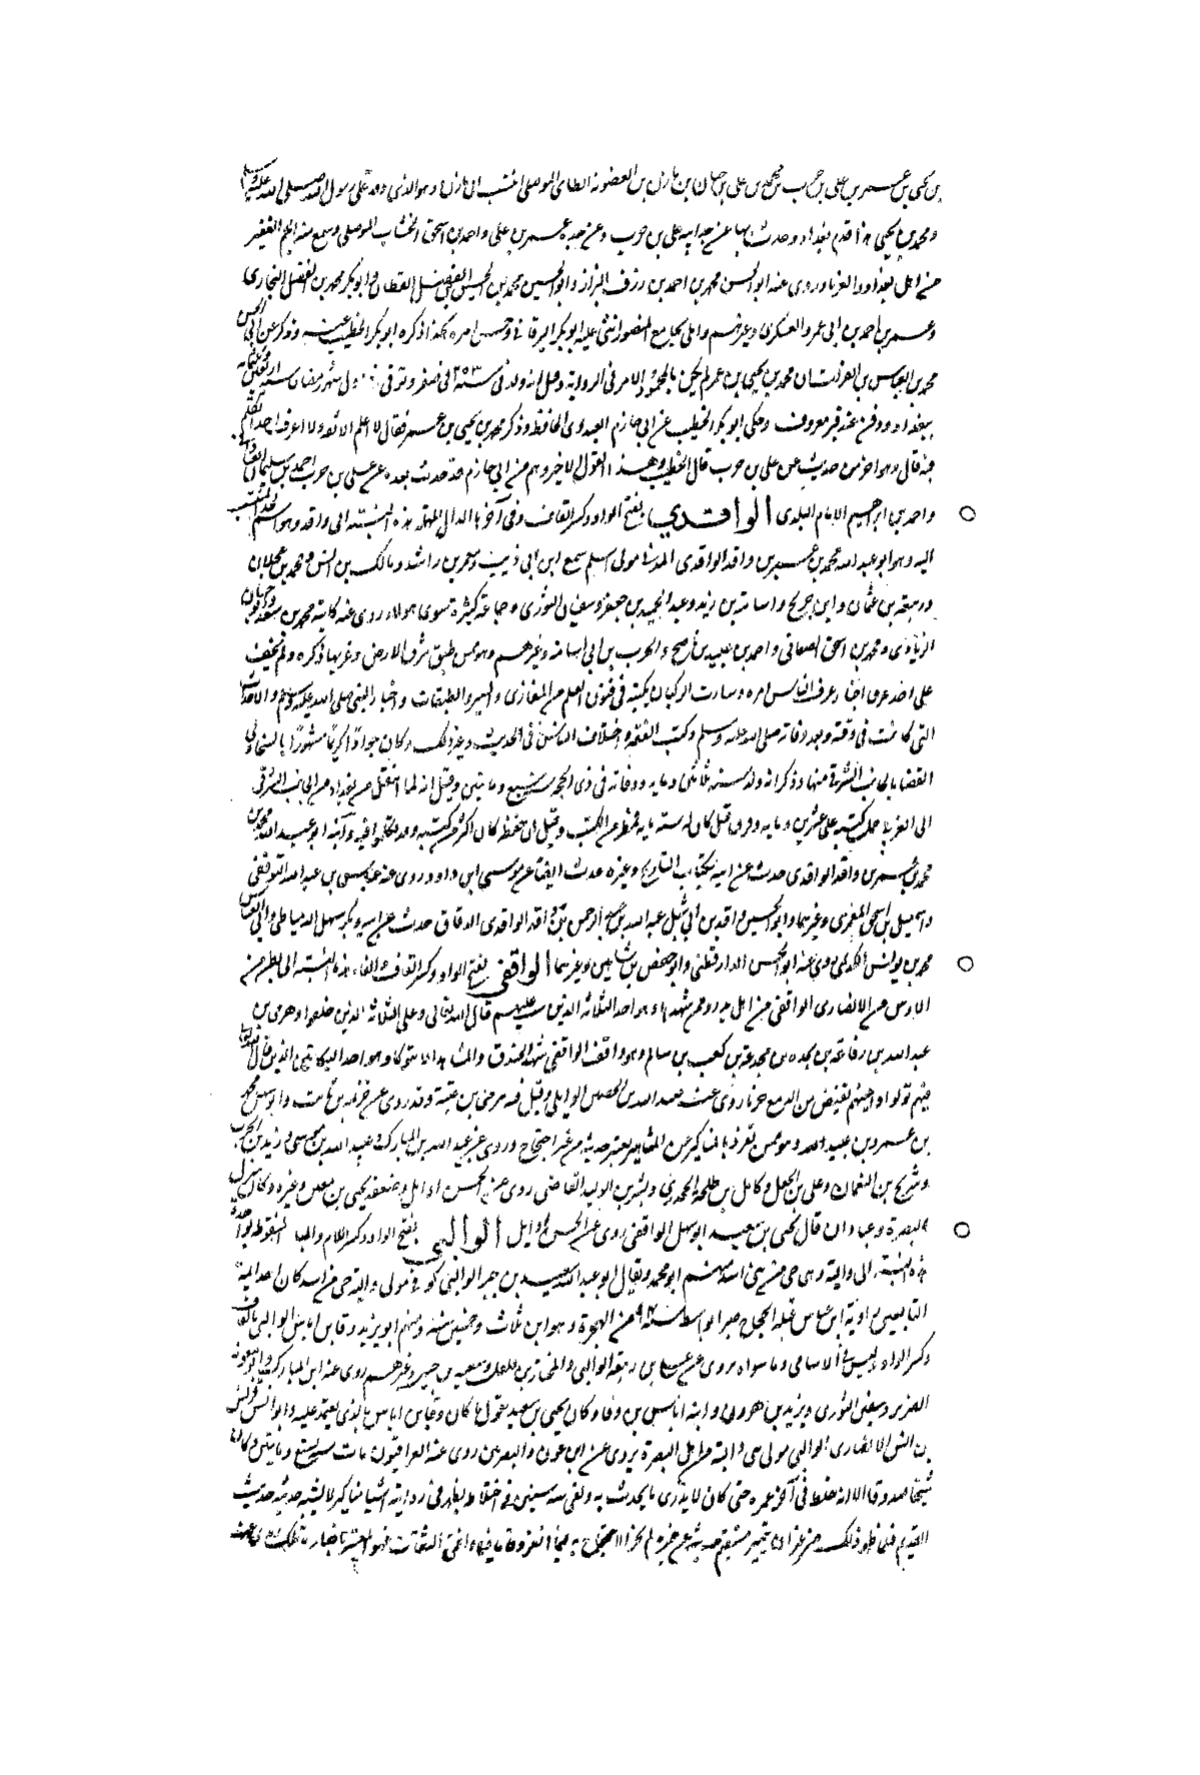 بن يحيى بن عمر بن على بن حرب بن محمد بن على بن حيان بن مازن بن الغضوبة الطائى الموصلى انتسب الى مازن وهو الذى وفد على رسول الله صلى الله عليه وسلم
ومحمد بن يحيى هذا قدم بغداد وحدث بها عن جد ابيه على بن حرب وعن جده عمر بن على واحمد بن اسحق الخشاب الموصلى وسمع منه الجم الغفير
من اهل بغداد والغرباء وروى عنه ابو الحسن محمد بن احمد بن رزق البزاز وابو الحسين محمد بن الحسين بن الفضل القطان وابو بكر محمد بن الفضل البخارى
وعمر بن احمد بن ابى عمرو العسكرى وغيرهم واملى بجامع المنصور اثنى عليه ابو بكر البرقانى وحسن امره هكذا ذكره ابو بكر الخطيب عنه وذكر عن ابى الحسن
محمد بن العباس بن الفرات ان محمد بن يحيى بن عمر لم يكن بالمحمود الامر فى الرواية وقيل انه ولد فى سنة ٢٥٣ وتوفى شهر رمضان سنة
ببغداد ودفن عند قبر معروف وحكى ابو بكر الخطيب عن ابى حازم العبدوى الحافظ وذكر محمد بن يحيى بن عمر فقال لا اعلم الا ثقة ولا اعرف احدا تكلم
فيه قال وهو اخر من حدث عن على بن حرب قال الخطيب وهذا القول الاخير وهم من ابى حازم قد حدث بعده عن على بن حرب احمد بن سليمان
واحمد بن ابراهيم الامام البلدى الواقدي بفتح الواو وكسر القاف وفى آخرها الدال المهملة هذه النسبة الى واقد وهو اسم لجد المنتسب
اليه وهو ابو عبد الله محمد بن عمر بن واقد الواقدى المدنى مولى اسلم سمع ابن ابى ذيب ومعمر بن راشد ومالك بن انس ومحمد بن عجلان
وربيعة بن عثمان وابن جريج واسامة بن زيد وعبد الحميد بن جعفر وسفيان الثورى وجماعة كثيرة سوى هولاء روى عنه كاتبه محمد بن سعد وابو حسان
الزيادى ومحمد بن اسحق الصغانى واحمد بن عبيد بن ناصح والحرث بن ابى اسامة وغيرهم وهو ممن طبق شرق الارض وغربها ذكره ولم يخف
على احد عرف اخبار الناس امره وسارت الركبان بكتبه فى فنون العلم من المغازى والسير والطبقات واخبار النبى صلى الله عليه وسلم والاحداث
التى كانت فى وقته وبعد وفاته صلى الله عليه وسلم وكتب الفقه واختلاف الناس فى الحديث وغير ذلك وكان جوادا كريما مشهورا بالسخا ولى
القضا بالجانب الشرقى منها وذكر انه ولد سنة ثلاثين ومايه ووفاته فى ذى الحجه سنة سبع ومايتين وقيل انه لما انتقل من بغداد من الجانب الشرقى
الى الغربى حمل كتبه على عشرين ومايه وقر وقيل كان له ستمايه قمطر من الكتب وقيل ان حفظه كان اكثر من كتبه وقد تكلموا فيه وابنه ابو عبد الله محمد بن
محمد بن عمر بن واقد الواقدى حدث عن ابيه بكتاب التاريخ وغيره حدث ايضا عن موسى بن داود روى عنه عباس بن عبد الله الترقفى
واسمعيل بن اسحق المغمرى وغيرهما وابو الحسين واقد بن ابى شبل عبد الله بن عبد الرحمن بن واقد الواقدى الدقاق حدث عن ابيه وبكر بن سهل الدمياطى وابى العباس
محمد بن يونس الكديمى روى عنه ابو الحسن الدارقطنى وابو حفص بن شاهين وغيرهما الواقفي بفتح الواو وكسر القاف والفاء هذه النسبة الى بطن من
الاوس من الانصارى الواقفى من اهل بدر وممن شهدها وهو احد الثلاثة الذين تيب عليهم قال الله تعالى وعلى الثلاثة الذين خلفوا وهرمى بن
عبد الله بن رفاعة بن نجده بن مجدعة بن كعب بن سالم وهو واقف الواقفى شهد الخندق والمشاهد الا تبوكا وهو احد البكائين الذين قال الله تعالى
فيهم تولوا واعينهم تفيض من الدمع حزنا روى عنه عبد الله بن الحصين الوايلى وقيل فيه هرمى بن عتبة وقد روى عن خزيمة بن ثابت وابو سهل محمد
بن عمرو بن عبيد الله وهو ممن ينفرد بالمناكير عن المشاهير يعتبر حديثه من غير احتجاج وروى عنه عبد الله بن المبارك وعبيد الله بن موسى وزيد بن الحرب
وشريح بن النعمان وعلى بن الجعد وكامل بن طلحة الجحدرى وبشر بن الوليد القاضى روى عن الحسن اوابل وضعفه يحيى بن معين وغيره وكان ينزل
البصرة وعبادان قال يحيى بن سعيد ابو سهل الواقفى روى عن الحسن اوابل الوالبي بفتح الواو وكسر اللام والبا المنقوطة بواحدة
هذه النسبة الى والبة وهى حى من بنى اسد منهم ابو محمد ويقال ابو عبد الله سعيد بن جبير الوالبى كوفى مولى والبة حى من اسد كان احد ائمة
التابعين راويه ابن عباس قتله الحجاج صبرا بواسط سنة من الهجرة وهو ابن ثلاث وخمسين سنة ومنهم ابو يزيد وقا بن اياس الوالبى بالقاف
وكسر الواو ليس فى الاسامى وما سواه يروى عن على بن ربيعة الوالبى والمختار بن فلفل وسعيد بن جبير وغيرهم روى عنه ابن المبارك وابو معاوية
الضرير وسفين الثورى ويزيد بن هرون وابنه اياس بن وقا وكان يحيى بن سعيد يقول ما كان وقا بن اياس بالذى يعتمد عليه وابو انس قريش
بن انس الانصارى الوالبى مولى بنى والبة من اهل البصرة يروى عن ابن عون والبصريين روى عنه العراقيون مات سنة تسع ومايتين وكان
شيخا صدوقا الا انه اختلط فى آخر عمره حتى كان لا يدرى ما يحدث به وبقى ست سنين فى اختلاطه يظهر فى روايته اشيا مناكير لا يشبه حديثه حديث
القديم فلما ظهر ذلك من غير ان يتميز مستقيم حديثه من غيره لم يجز الاحتجاج به فيما انفرد فاما فيما وافق الثقات فهو المعتبر باخباره تلك